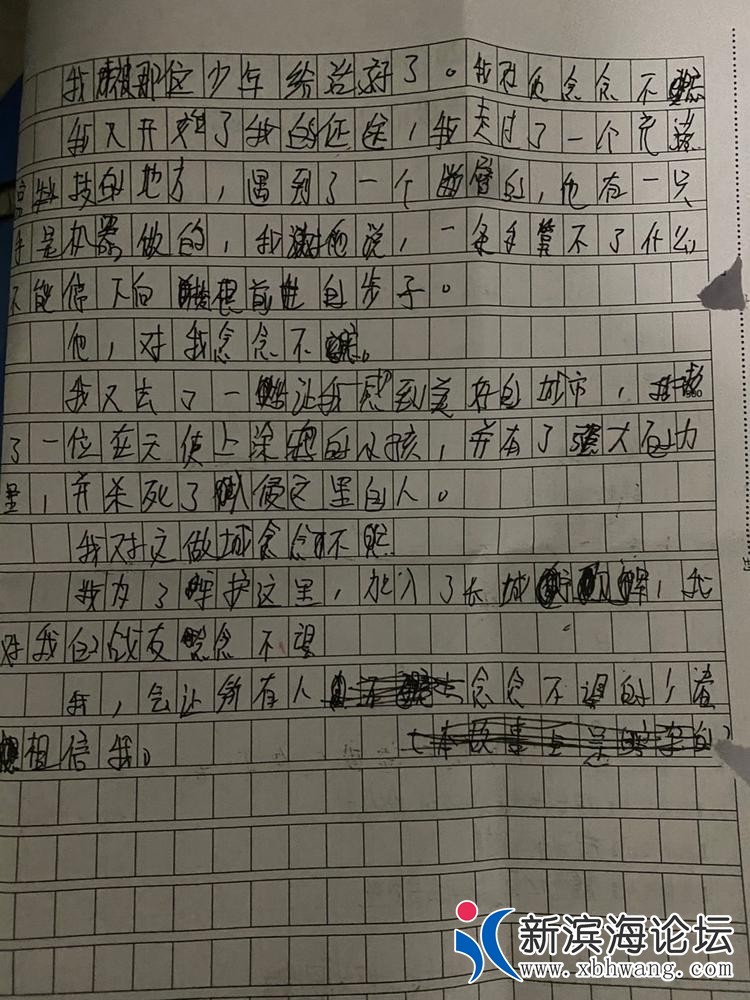 我被那位少年给治好了。我对他念念不
我又开始了我的征途，我走过了一个充满
科技的地方，遇到了一个的，他有一只
手是机器做的，我对他说，一条手算不了什么
不能停下向前进的步子。
他，对我念念不
我又去了一让我感到美好的城市，
了一位在天使上涂鸦的女孩，并有了强大的力
量，并杀死了侵这里的人。
我对这做城念念不忘
我为了守护这里，加入了长城，我
对我的战友念念不望
我，会让所有人念念不望的！请
相信我。
新滨海论坛
www.xbhwang.com